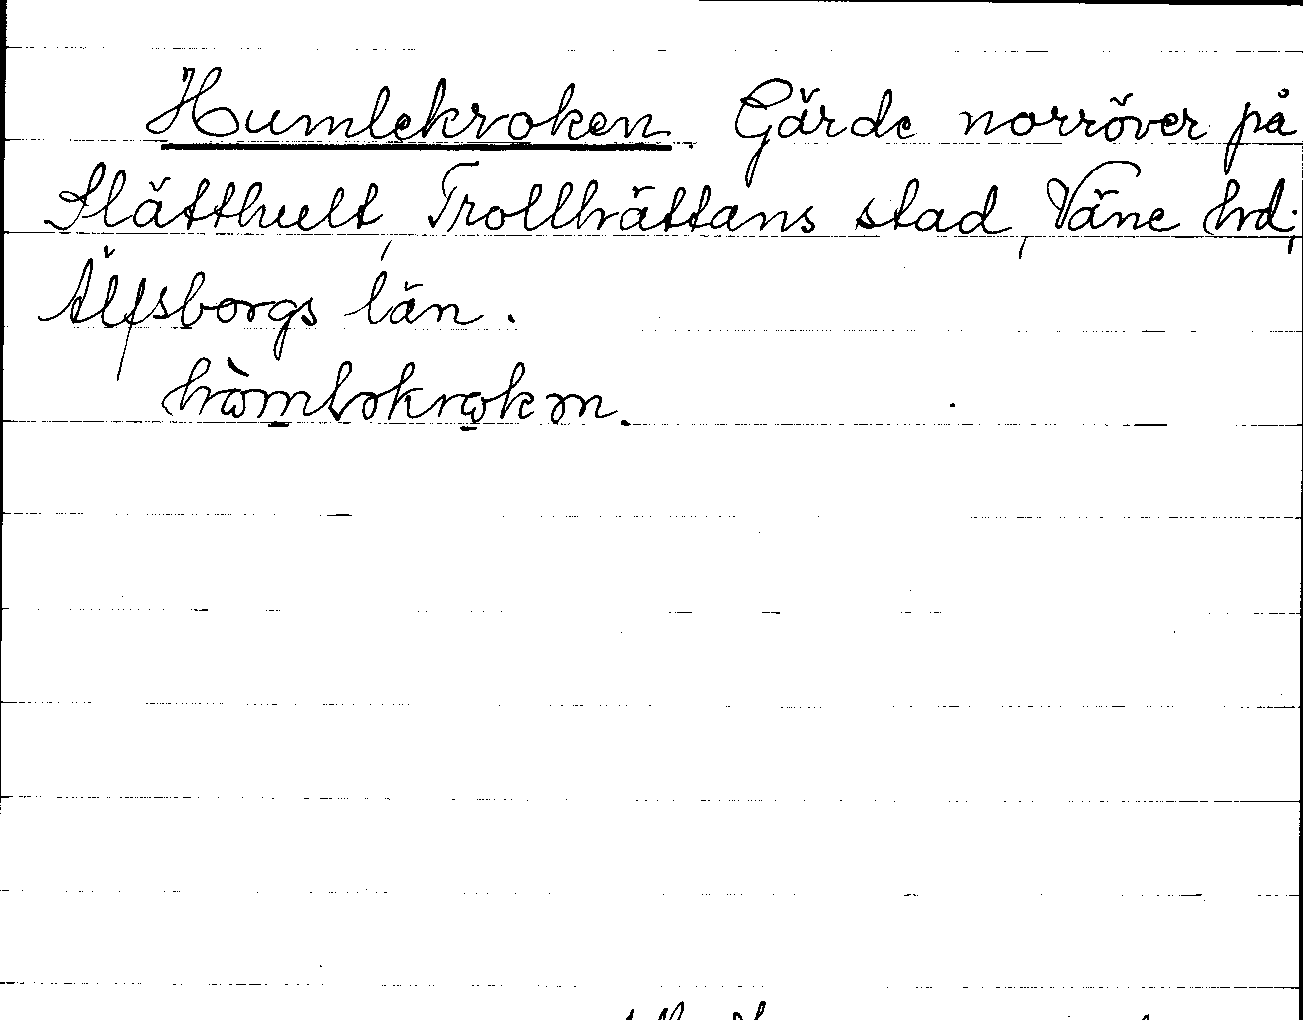 Humlekroken. Gärde norröver på
Slätthult, Trollhättans stad, Väne hd,
Älfsborgs län.